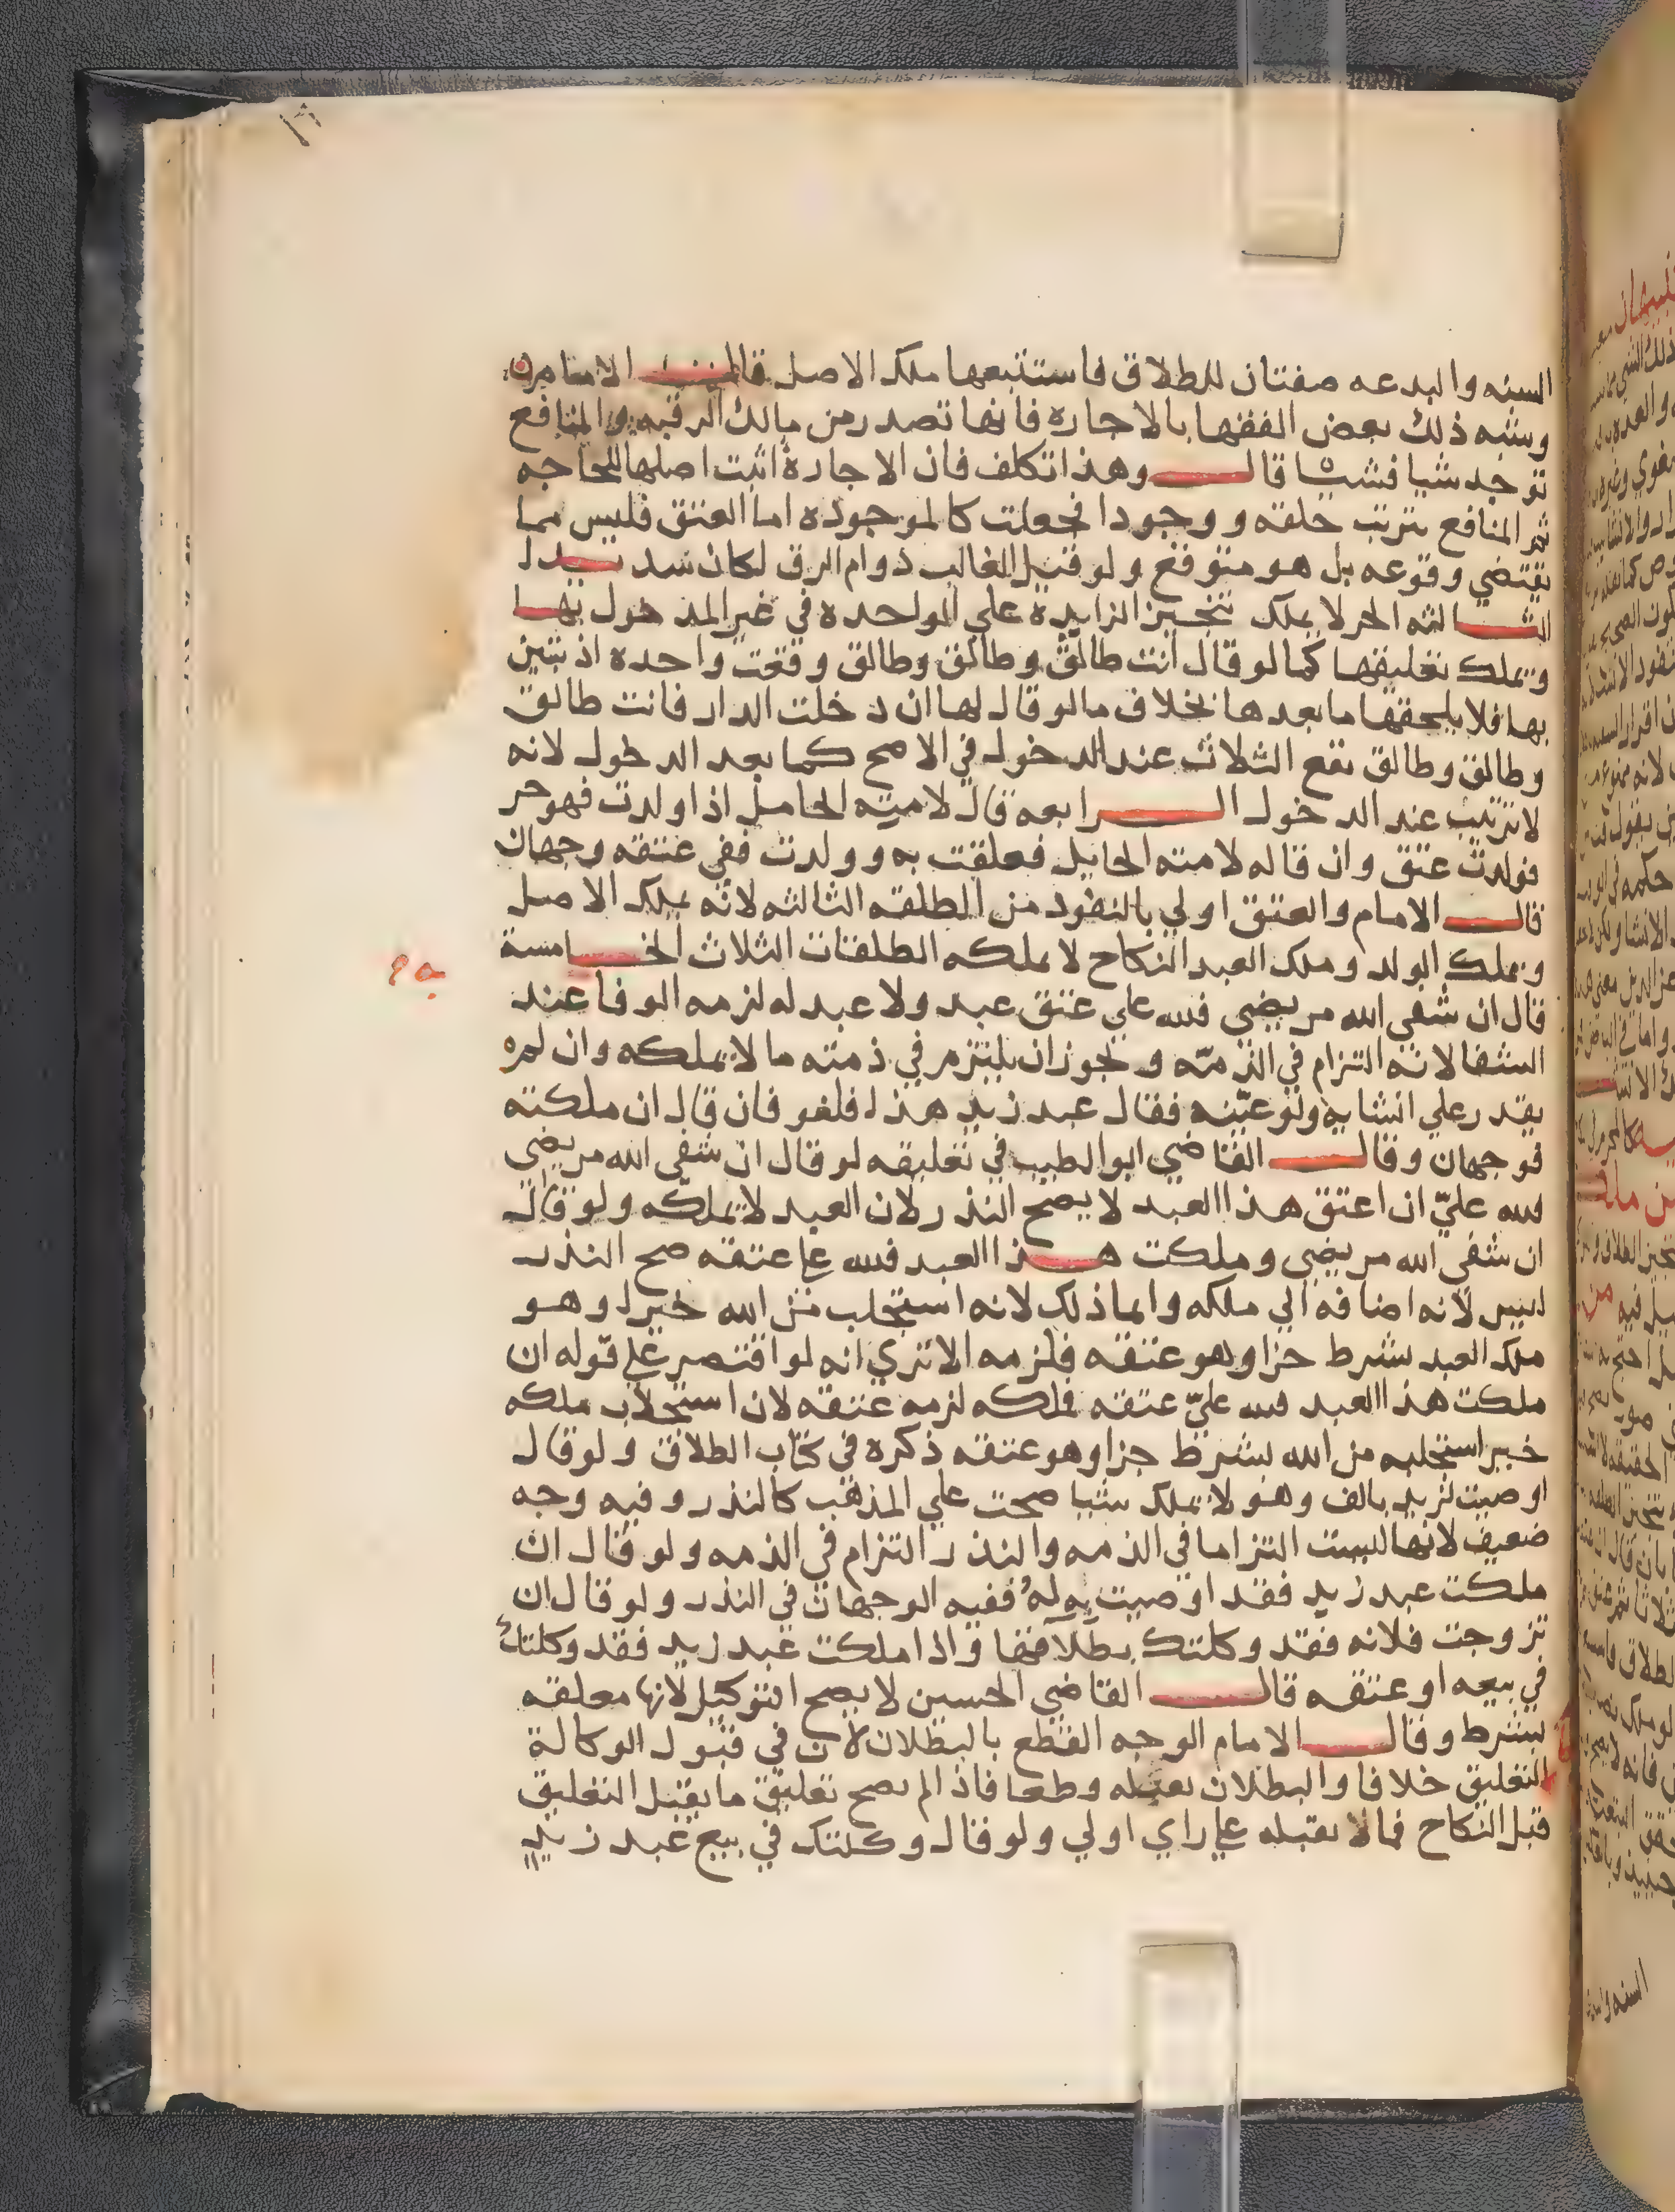 ١٦
السنه والبدعه صفتان للطلاق فاستتبعها ملك الاصل قال الامام
وشبه ذلك بعض الفقها بالاجاره فانها تصدر من مالك الرقبه والمنافع
توجد شيا فشيا قال وهذا تكلف فان الاجارة اثبت اصلها للحاجه
ثم المنافع يترتب خلقه ووجودا فجعلت كالموجوده اما العتق فليس مما
يقتضي وقوعه بل هو متوقع ولو قيل الغالب دوام الرق لكان سديدا
الثالثه الحر لا يملك تنجيز الزايده علي الواحده في غير المدخول بها
ويملك تعليقها كما لو قال انت طالق وطالق وطالق وقعت واحده اذ تبين
بها فلا يلحقها ما بعدها بخلاف ما لو قال لها ان دخلت الدار فانت طالق
وطالق وطالق تقع الثلاث عند الدخول في الاصح كما بعد الدخول لانه
لا ترتيب عند الدخول الرابعه قال لامته الحامل اذا ولدت فهو حر
فولدت عتق وان قاله لامته الحايل فعلقت به وولدت ففي عتقه وجهان
قال الامام والعتق اولي بالنفود من الطلقه الثالثه لانه يملك الاصل
ويملك الولد وملك العبد النكاح لا يملكه الطلقات الثلاث الخامسة
قال ان شفى الله مريضي فلله علي عتق عبد ولا عبد له لزمه الوفا عند
الشفا لانه التزام في الذمّه ويجوز ان يلتزم في ذمته ما لا يملكه وان لم
يقدر علي انشايه ولو عيّنه فقال عبد زيد هذا فلغو فان قال ان ملكته
فوجهان وقال القاضي ابو الطيب في تعليقه لو قال ان شفى الله مريضي
فلله عليّ ان اعتق هذا العبد لا يصح النذر لان العبد لا يملكه ولو قال
ان شفى الله مريضي وملكت هذا العبد فلله علي عتقه صح النذر
ليس لانه اضافه الي ملكه وانما ذلك لانه استجلب من الله خيرا وهو
ملك العبد بشرط جزا وهو عتقه فلزمه الا تري انه لو اقتصر علي قوله ان
ملكت هذا العبد فلله عليّ عتقه فملكه لزمه عتقه لان استجلاب ملكه
خير استجلبه من الله بشرط جزا وهو عتقه ذكره في كتاب الطلاق ولو قال
اوصيت لزيد بالف وهو لا يملك شيا صحت علي المذهب كالنذر وفيه وجه
ضعيف لانها ليست التزاما في الذمه والنذر التزام في الذمه ولو قال ان
ملكت عبد زيد فقد اوصيت به له ففيه الوجهان في النذر ولو قال ان
تزوجت فلانه فقد وكلتك بطلاقها واذا ملكت عبد زيد فقد وكلتك
في بيعه او عتقه قال القاضي الحسين لا يصح التوكيل لانها معلقه
بشرط وقال الامام الوجه القطع بالبطلان لان في قبول الوكالة
التعليق خلافا والبطلان يقبله وطعا فاذا لم يصح تعليق ما يقبل التعليق
قبل النكاح فما لا يقبله علي راي اولي ولو قال وكلتك في بيع عبد زيد